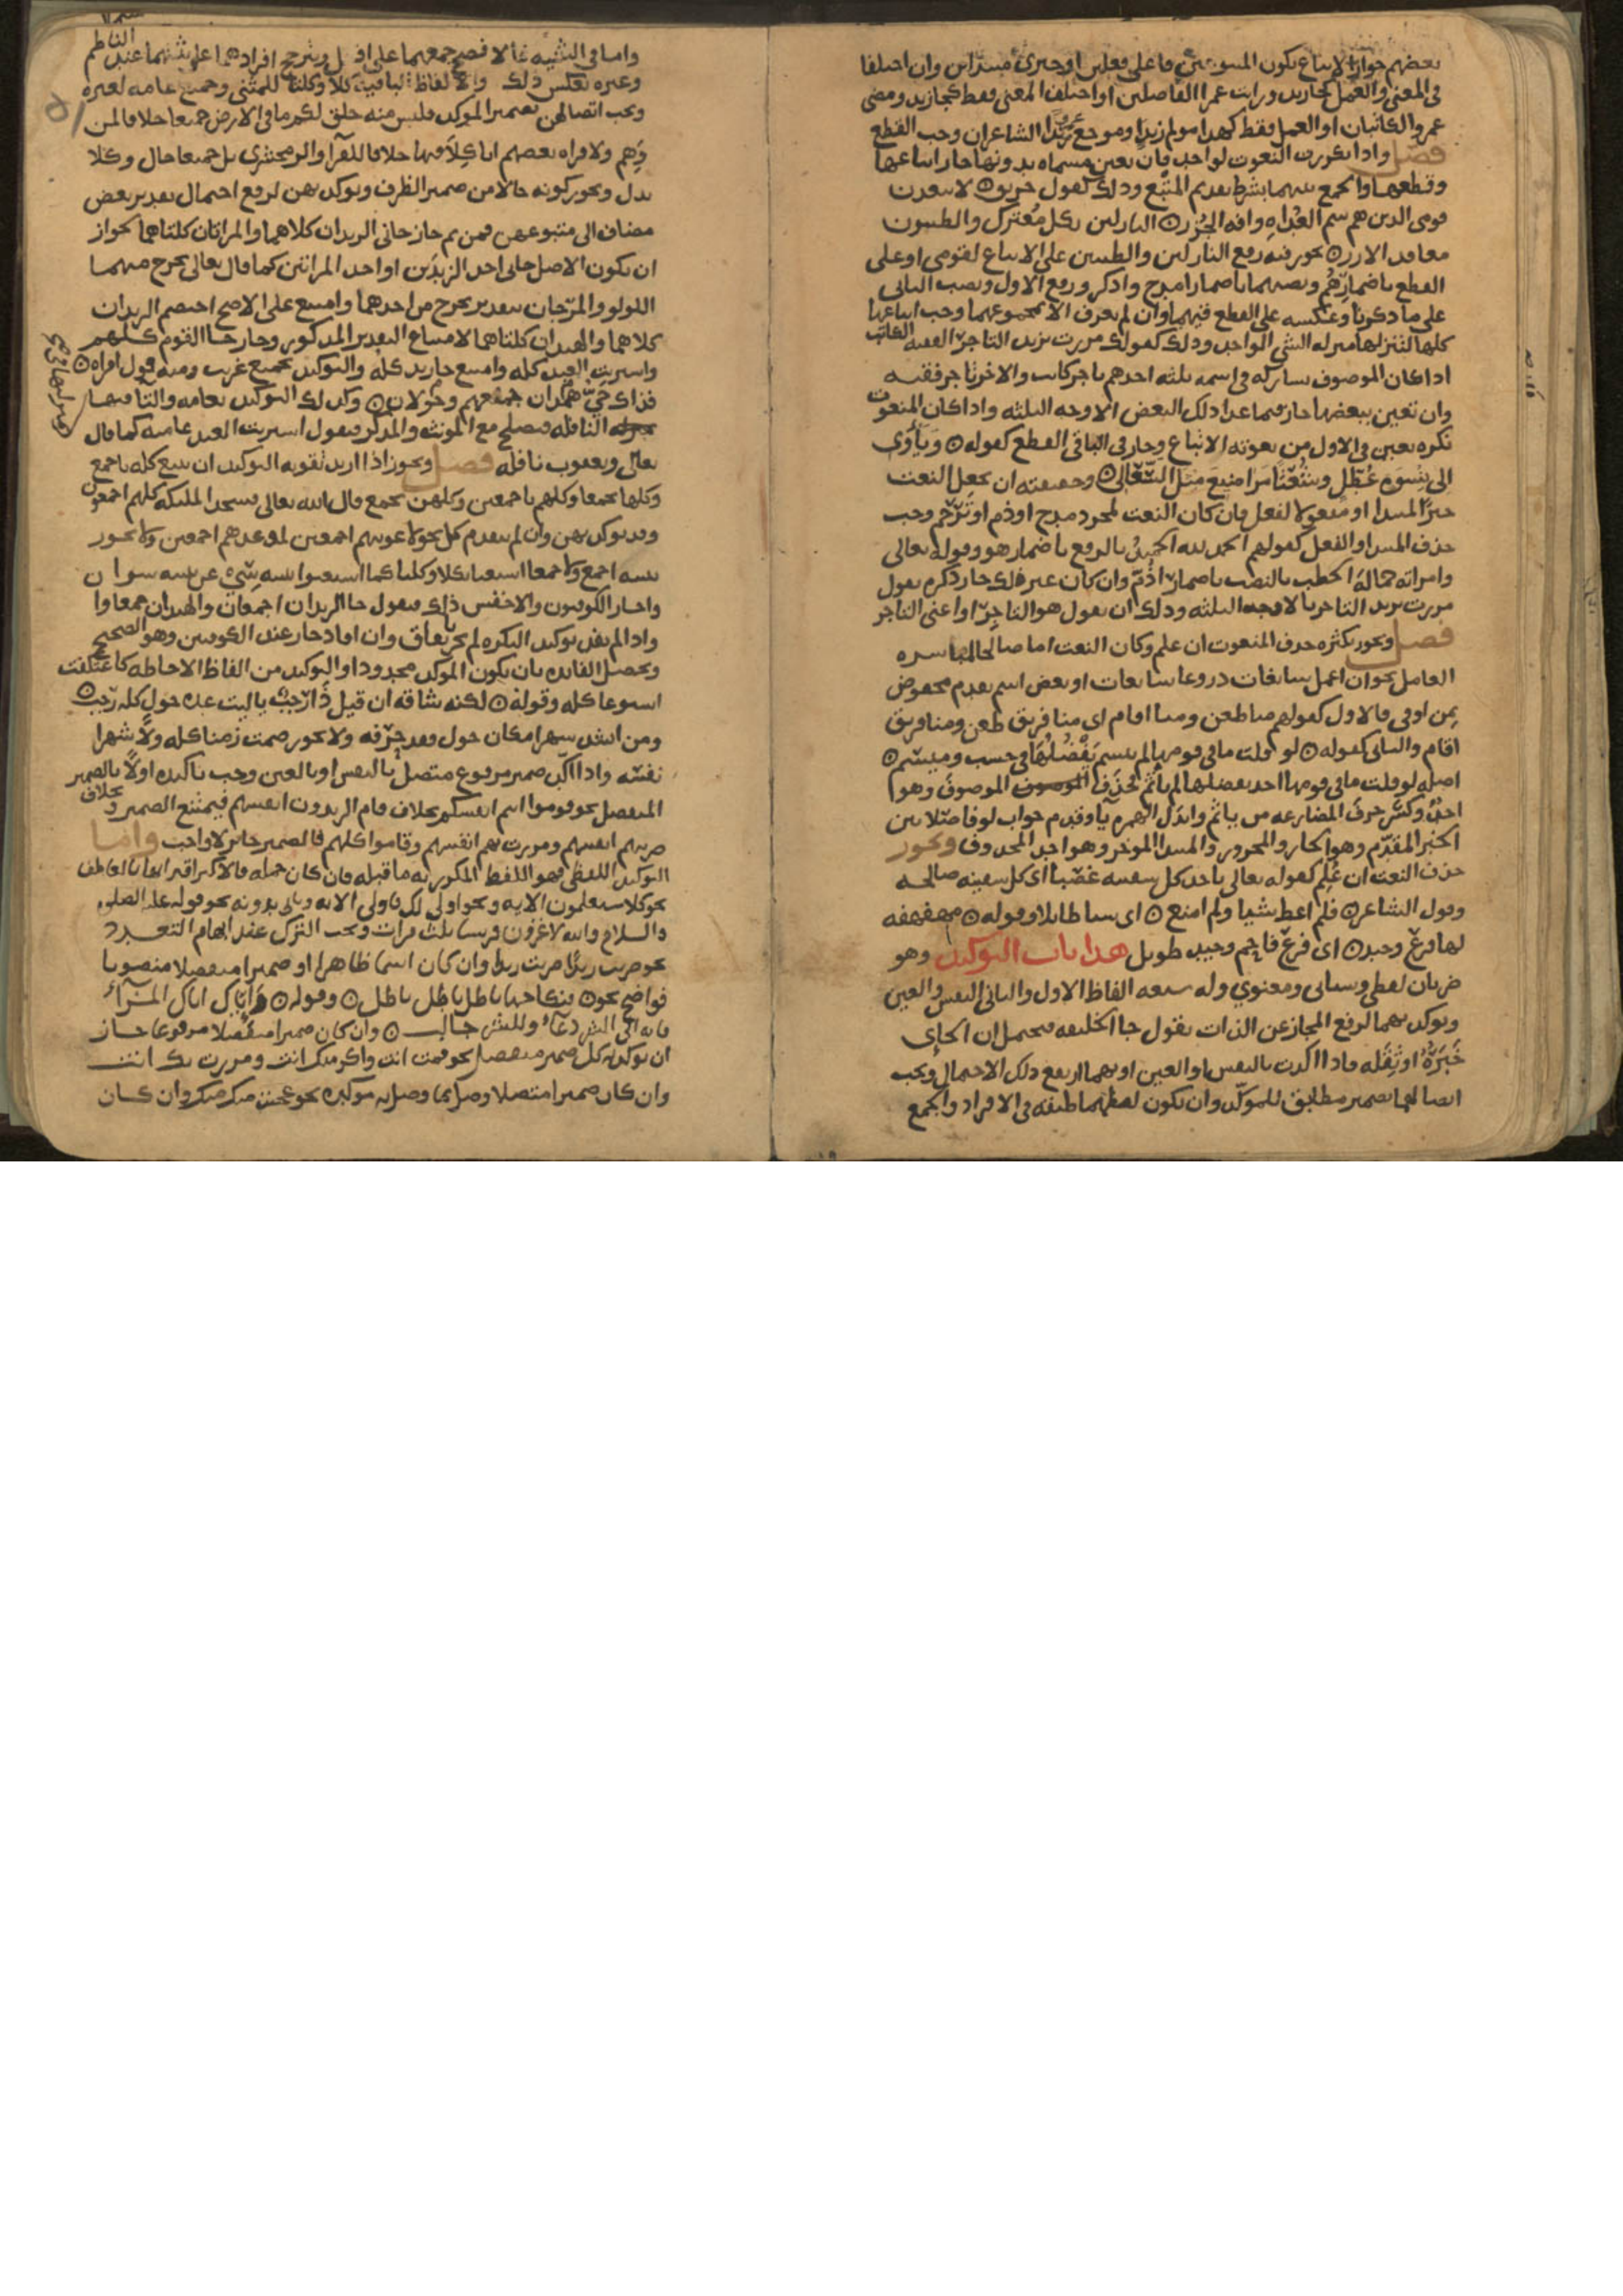 بعضهم جواز الاتباع بكون المتبوعين فاعلي فعلين او خبري مبتدأين وان اختلفا
في المعنى والعمل كجا زيد ورايت عمرا الفاضلين او اختلف المعنى فقط كجا زيد ومضى
عمرو الكاتبان او العمل فقط كهذا مولم زيد وموجع عمرا الشاعران وجب القطع
فصل واذا تكررت النعوت لواحد فان تعين مسماه بدونها جاز اتباعها
وقطعها والجمع بينهما بشرط تقديم المتبع وذلك كقول خرنق لا يبعدن
قومي الذين هم سم العداه وافه الجزر النازلين بكل معترك والطيبون
معاقد الازر يجوز فيه رفع النازلين والطيبين على الاتباع لقومي او على
القطع باضمار هم ونصبهما باضمار امدح واذكر ورفع الاول ونصب الثاني
على ما ذكرنا وعكسه على القطع فيهما وان لم يعرف الا بمجموعها وجب اتباعها
كلها لتنزلها منزله الشي الواحد وذلك كقولك مررت بزيد التاجر الفقيه الكاتب
اذا كان الموصوف يشاركه في اسمه ثلثه احدهم تاجر كاتب والاخر تاجر فقيه
وان تعين ببعضها جاز فيما عدا ذلك البعض الاوجه الثلثه واذا كان المنعوت
نكره تعين في الاول من نعوته الاتباع وجاز في الباقي القطع كقوله وياوي
الى نسوه عطل وشعثا مراضيع مثل السعالي وحقيقته ان يجعل النعت
خبرا لمبتدا او مفعولا لفعل فان كان النعت لمجرد مدح او ذم او ترحم وجب
حذف المبتدا والفعل كقولهم الحمد لله الحميد بالرفع باضمار هو وقوله تعالى
وامراته حماله الحطب بالنصب باضمار اذم وان كان غير ذلك جاز ذكره تقول
مررت بزيد التاجر بالاوجه الثلثه ولك ان تقول هو التاجر او اعني التاجر
فصل ويجوز بكثره حذف المنعوت ان علم وكان النعت اما صالحا لمباشره
العامل نحو ان اعمل سابغات دروعا سابغات او بعض اسم مقدم مخفوض
بمن او في فالاول كقولهم منا ظعن ومنا اقام اي منا فريق ظعن ومنا فريق
اقام والثاني كقوله لو قلت ما في قومها لم تيثم يفضلها في حسب وميسم
اصله لو قلت ما في قومها احد يفضلها لم تاثم فحذف الموصوف وهو
احد وكسر حرف المضارعه من تاثم وابدل الهمزه يا وقدم جواب لو فاصلا بين
الخبر المقدم وهو الجار والمجرور والمبتدا الموخر وهو احد المحذوف ويجوز
حذف النعت ان علم كقوله تعالى ياخذ كل سفينه غصبا اي كل سفينه صالحه
وقول الشاعر فلم اعط شيا ولم امنع اي شيا طايلا وقوله مهفهفه
لها فرع وجيد اي فرع فاحم وجيد طويل هذا باب التوكيد وهو
ضربان لفظي وسياتي ومعنوي وله سبعه الفاظ الاول والثاني النفس والعين
ويوكد بهما لرفع المجاز عن الذات تقول جا الخليفه فيحتمل ان الجاي
خبره او ثقله فاذا اكدت بالنفس او العين او بهما ارتفع ذلك الاحتمال ويجب
اتصالهما بضمير مطابق للموكد وان يكون لفظهما طبقه في الافراد والجمع
واما في التثنيه فالافصح جمعهما على افعل ويترجح افرادهما على تثنيتهما عند الناظم
وغيره بعكس ذلك والالفاظ الباقيه كلا وكلتا للمثنى وجميع وعامه لغيره
ويجب اتصالهن بضمير الموكد فليس منه خلق لكم ما في الارض جميعا خلافا لمن
وهم ولا قراه بعضهم انا كلا فيها خلافا للفرا والزمخشري بل جميعا حال وكلا
بدل ويجوز كونه حالا من ضمير الظرف ويوكد بهن لرفع احتمال تقدير بعض
مضاف الى متبوعهن فمن ثم جاز جاني الزيدان كلاهما والمراتان كلتاهما لجواز
ان يكون الاصل جا احد الزيدين او احد المراتين كما قال تعالى يخرج منهما
اللولو والمرجان بتقدير يخرج من احدهما وامتنع على الاصح اختصم الزيدان
كلاهما والهندان كلتاهما لامتناع التقدير المذكور وجاز جا القوم كلهم
واشتريت العبد كله وامتنع جا زيد كله والتوكيد بجميع غريب ومنه قول امراه
فداك حي خولان جميعهم وهمدان وكذلك التوكيد بعامه والتا فيها
النافله فتصلح مع المونث والمذكر فتقول اشتريت العبد عامته كما قال
تعالى ويعقوب نافله فصل ويجوز اذا اريد تقويه التوكيد ان يتبع كله باجمع
وكلها بجمعا وكلهم باجمعين وكلهن بجمع قال الله تعالى فسجد الملايكه كلهم اجمعون
وقد يوكد بهن وان لم يتقدم كل نحو لاغوينهم اجمعين لموعدهم اجمعين ولا يجوز
تثنيه اجمع ولا جمعا استغنا بكلا وكلتا كما استغنوا بتثنيه سي عن تثنيه سوا
واجاز الكوفيون والاخفش ذلك فتقول جا الزيدان اجمعان والهندان جمعاوان
واذا لم يفد توكيد النكره لم يجز باتفاق وان افاد جاز عند الكوفيين وهو الصحيح
وتحصل الفايده بان يكون الموكد محدودا والتوكيد من الفاظ الاحاطه كاعتكفت
اسبوعا كله وقوله لكنه شاقه ان قيل ذا رجب ياليت عده حول كله رجب
ومن انشد شهر مكان حول فقد حرفه ولا يجوز صمت زمنا كله ولا شهرا
نفسه واذا اكد ضمير مرفوع متصل بالنفس او بالعين وجب تاكيده اولا بالضمير
المنفصل نحو قوموا انتم انفسكم بخلاف قام الزيدون انفسهم فيمتنع الضمير وبخلاف
ضربتهم انفسهم ومررت بهم انفسهم وقاموا كلهم فالضمير جايز لا واجب واما
التوكيد اللفظي فهو اللفظ المكرر به ما قبله فان كان جمله فالاكثر اقترانها بالعاطف
نحو كلا سيعلمون الايه ونحو اولى لك فاولى الايه وياتي بدونه نحو قوله عليه الصلوه
والسلام والله لاغزون قريشا ثلث مرات ويجب الترك عند ايهام التعدد
نحو ضربت زيدا ضربت زيدا وان كان اسما ظاهرا او ضميرا منفصلا منصوبا
فواضح نحو فنكاحها باطل باطل باطل وقوله فاياك اياك المرآء
فانه الى الشر دعآء وللشر جالب وان كان ضميرا منفصلا مرفوعا جاز
ان يوكد به كل ضمير متصل نحو قمت انت واكرمتك انت ومررت بك انت
وان كان ضميرا متصلا وصل بما وصل به موكده نحو عجبت منك منك وان كان